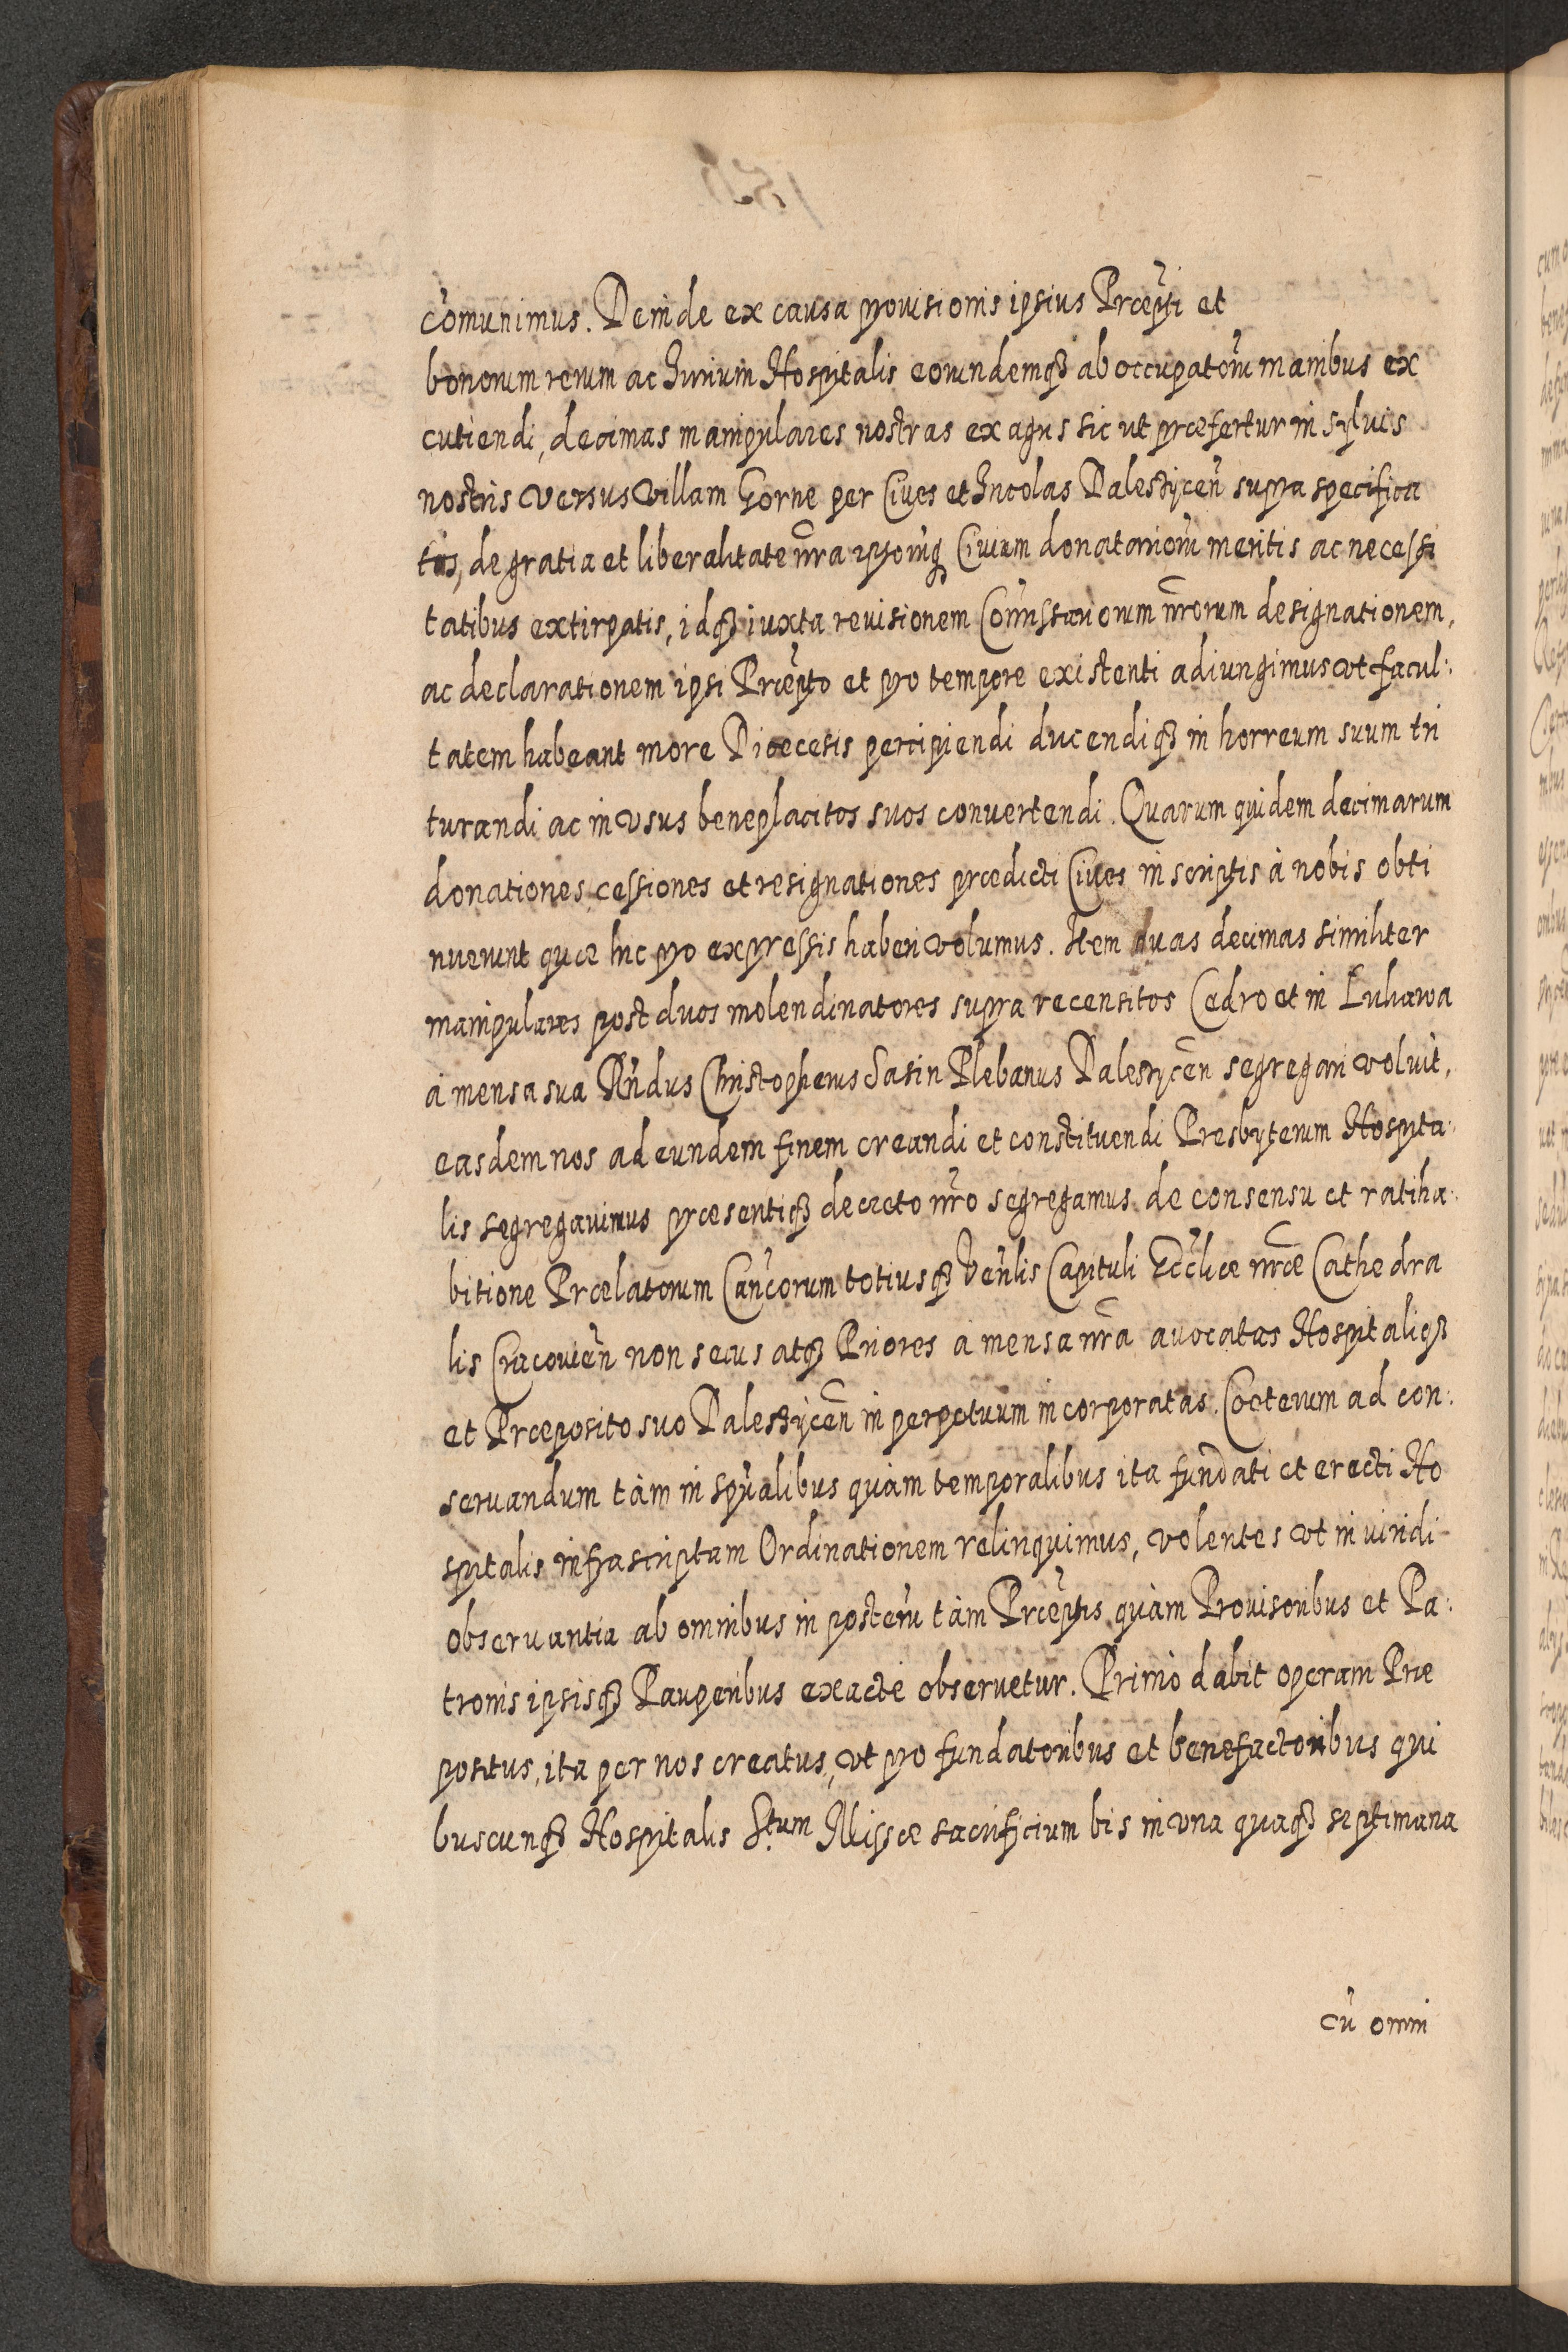 com̃unimus. Deinde ex causa prouisionis ipsius Prœp̃ti et
bonorum rerum ac Jurium Hospitalis eorundemqꝫ ab occupatorũ manibus ex
cutiendi, decimas manipulares nostras ex agris sic ut prœfertur in syluis
nostris versus villam Gorne per Ciues et Incolas Daleszycen̄ supra specifica
tas, de gratia et liberalitate nr̃a ipsorũqꝫ Ciuium donatariorũ meritis ac necessi
tatibus extirpatis, idqꝫ iuxta reuisionem Com̃issariorum nr̃orum designationem,
ac declarationem ipsi Prœp̃to et pro tempore existenti adiungimus vt facul:
tatem habeant more Diœcesis percipiendi ducendiqꝫ in horreum suum tri
turandi ac in vsus beneplacitos suos conuertendi. Quarum quidem decimarum
donationes cessiones et resignationes prœdicti Ciues in scriptis à nobis obti
nuerunt quœ hic pro expressis haberi volumus. Item duas decimas similiter
manipulares post duos molendinatores supra recensitos Cedro et in Luhawa
à mensa sua Rñdus Christopherus Sasin Plebanus Daleszycen̄ segregari voluit,
easdem nos ad eundem finem creandi et constituendi Presbyterum Hospita:
lis segregauimus prœsentiqꝫ decreto nr̃o segregamus de consensu et ratiha:
bitione Prœlatorum Can̄corum totiusqꝫ Ven̄lis Capituli Eccl̃iœ nr̃œ Cathedra
lis Cracouien̄ non secus atqꝫ Priores a mensa nr̃a auocatas Hospitaliqꝫ
et Prœposito suo Daleszycen̄ in perpetuum incorporatas. Cœterum ad con:
seruandum tàm in sp̃ualibus quàm temporalibus ita fundati et erecti Ho
spitalis infrascriptam Ordinationem relinquimus, volentes vt in viridi
obseruantia ab omnibus in posterũ tàm Prœp̃tis quàm Prouisoribus et Pa:
tronis ipsisqꝫ Pauperibus exactè obseruetur. Primò dabit operam Prœ
positus, ita per nos creatus, vt pro fundatoribus et benefactoribus qui
buscunqꝫ Hospitalis S:tum Missœ sacrificium bis in vna quaqꝫ septimana
cũ omni